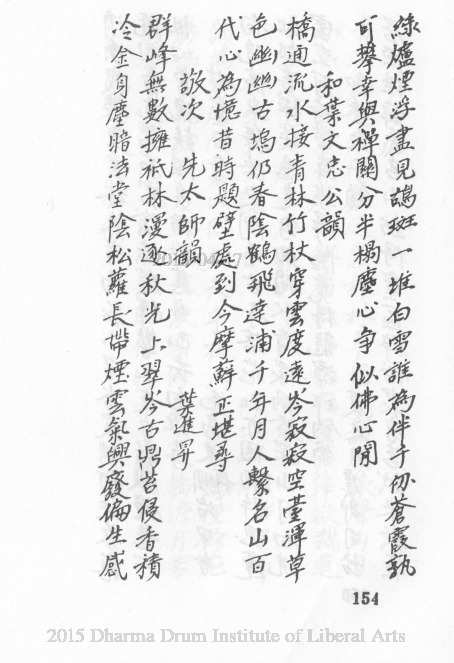 綠爐煙浮盡見鷓斑一堆白雪誰為伴千仞蒼霞孰
可攀幸與禪關分半榻塵心爭似佛心閒
和葉文忠公韻
橋通流水接青林竹杖穿雲度遠岑寂寂空臺渾草
色幽幽古塢仍春陰鶴飛遠浦千年月人繫名山百
代心為憶昔時題壁處到今摩蘚正堪尋
敬次 先太師韻
葉進昇
群峰無數擁祇林漫逐秋光上翠岑古鼎苔侵香積
冷金身塵暗法堂陰松蘿長帶煙雲氣興廢偏生感
154
2015 Dharma Drum Institute of Liberal Arts